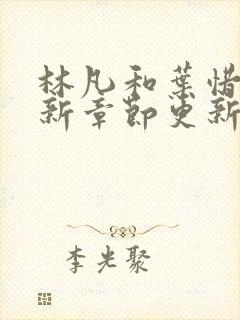 林凡和葉惜
新章節更新
李光聚